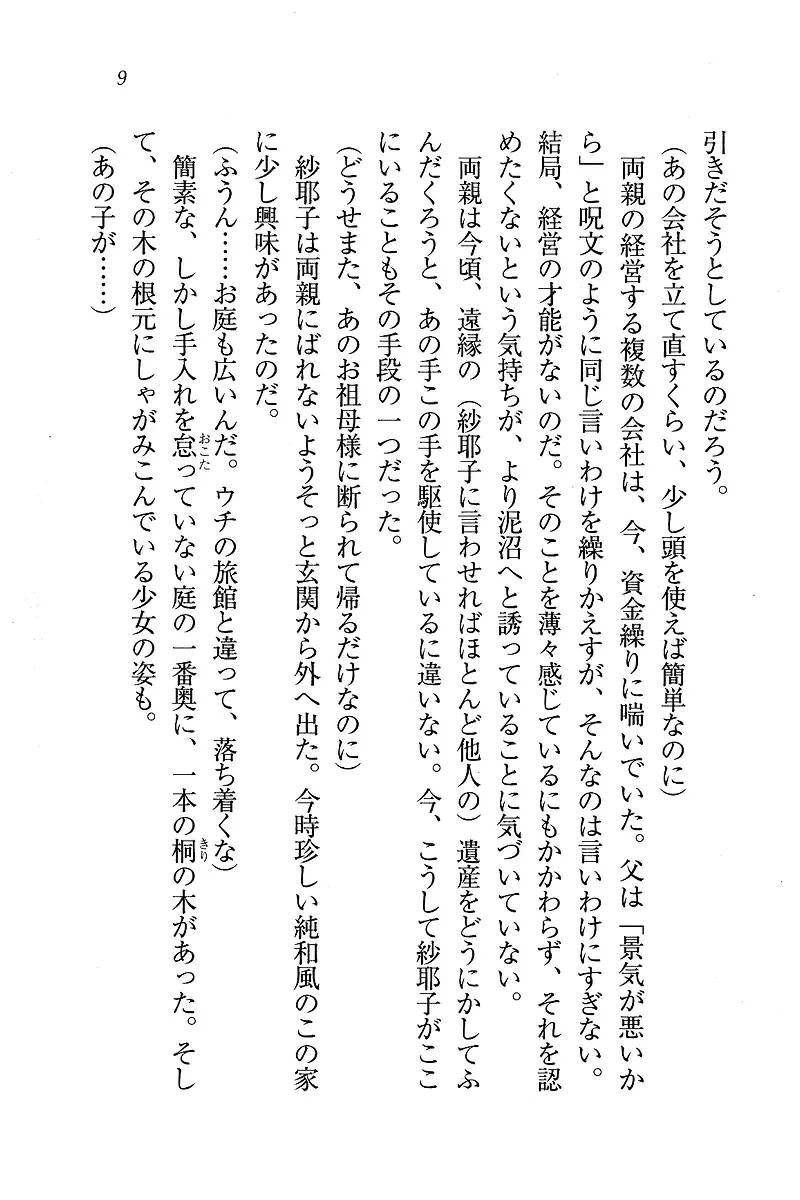 9
引きだそうとしているのだろう。
(あの会社を立て直すくらい、少し頭を使えば簡単なのに)
両親の経営する複数の会社は、今、資金繰りに喘いでいた。父は「景気が悪いか
ら」と呪文のように同じ言いわけを繰りかえすが、そんなのは言いわけにすぎない。
結局、経営の才能がないのだ。そのことを薄々感じているにもかかわらず、それを認
めたくないという気持ちが、より泥沼へと誘っていることに気づいていない。
両親は今頃、遠縁の(紗耶子に言わせればほとんど他人の)遺産をどうにかしてふ
んだくろうと、あの手この手を駆使しているに違いない。今、こうして紗耶子がここ
にいることもその手段の一つだった。
(どうせまた、あのお祖母様に断られて帰るだけなのに)
紗耶子は両親にばれないようそっと玄関から外へ出た。今時珍しい純和風のこの家
に少し興味があったのだ。
(ふうん……お庭も広いんだ。ウチの旅館と違って、落ち着くな)
簡素な、しかし手入れを怠っていない庭の一番奥に、一本の桐の木があった。そし
おこた
きり
て、その木の根元にしゃがみこんでいる少女の姿も。
(あの子が……)